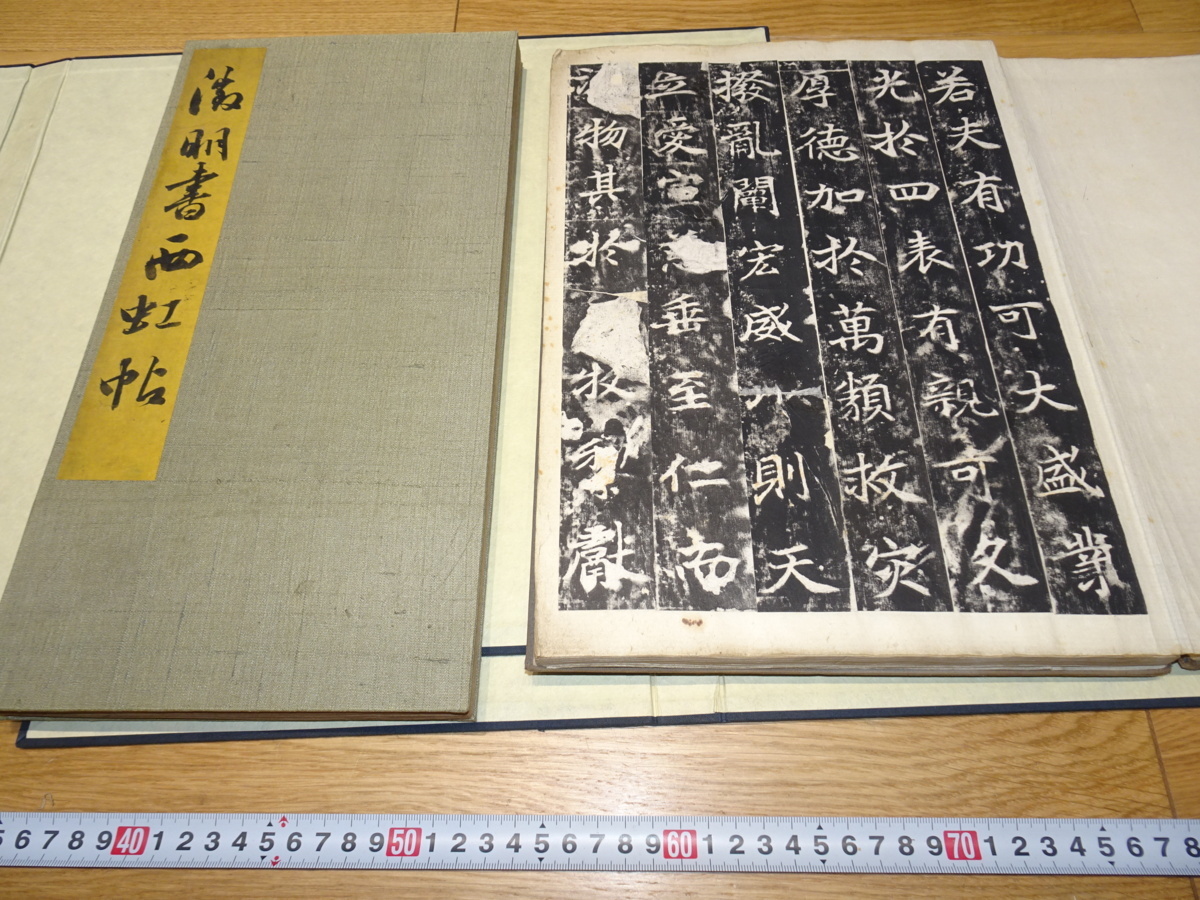 徵明書西虹帖
若夫有功可大盛業
光於四表有親可久
厚德加於萬類救灾
撥亂闡宏威以則天
立愛宣垂至仁而
物其於牧黎獻
5 6 7 8 9 40 1 2 3 4 5 6 7 8 9 50 1 2 3 4 5 6 7 8 9 60 1 2 3 4 5 6 7 8 9 70 1 2 3 4 5 6 7 8